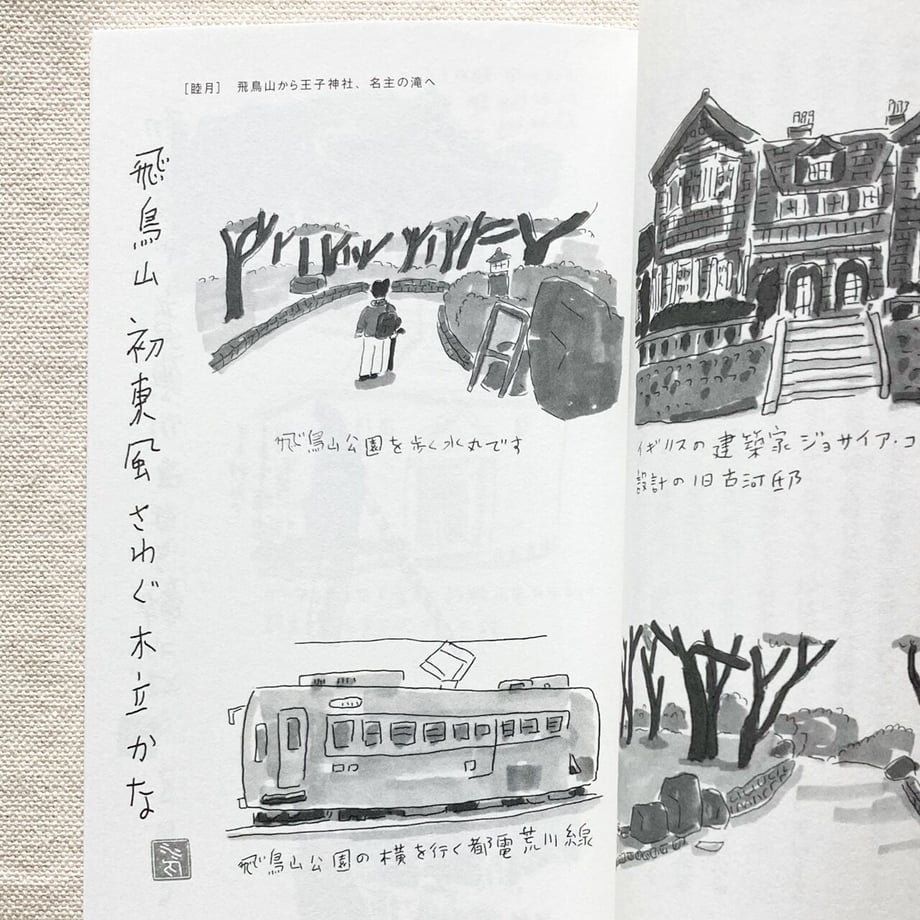 ［睦月］　飛鳥山から王子神社、名主の滝へ
飛鳥山 初東風さわぐ木立かな
飛鳥山公園を歩く水丸です
飛鳥山公園の横を行く都電荒川線
イギリスの建築家ジョサイア・コ
設計の旧古河邸